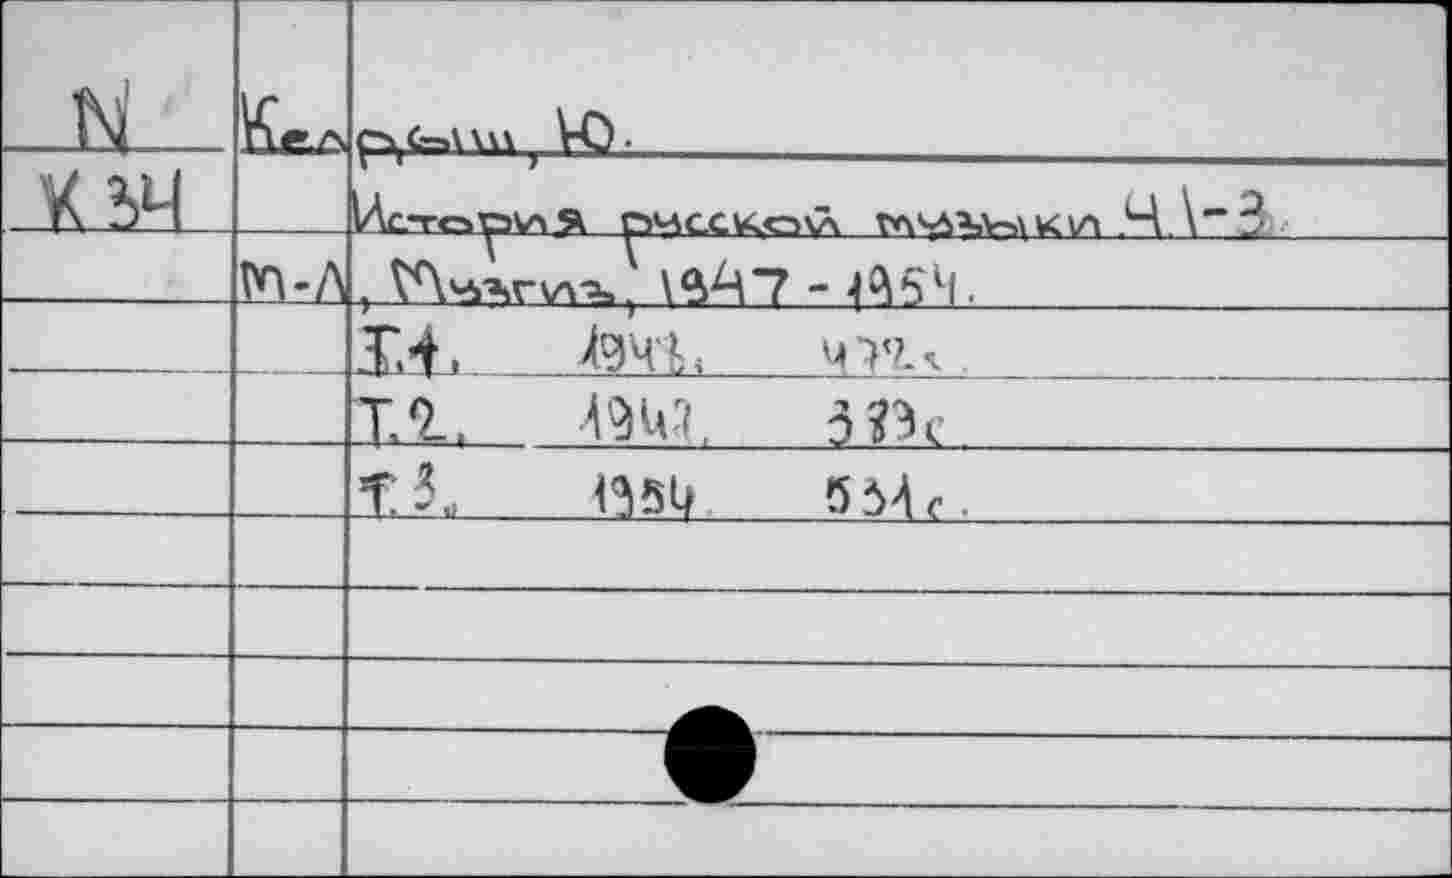 N Келдыш, Ю.
К34 История русской музыки Ч. 1-3
М-Л, Музгиз, 1947-1954.
Т.1.
Т.2. 1947.
Т.3. 1954 531с.